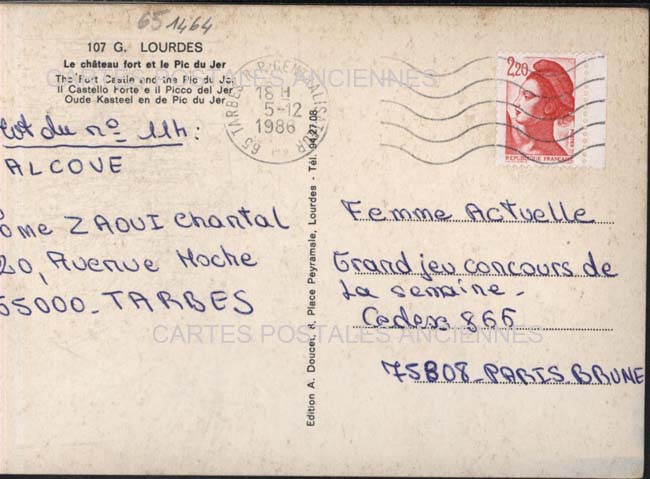 65 1464
107 G. LOURDES
Le château fort et le Pic du Jer
The Fort Castle and the Pic du Jer
Il Castello Forte e il Picco del Jer
Oude Kasteel en de Pic du Jer
CARTES POSTALES ANCIENNES
65 TARBES CENTRALISATEUR
18 H
5-12
1986
2,20
REPUBLIQUE FRANÇAISE
du nº 114:
ALCOVE
ZAOUI Chantal
20, Avenue Hoche
65000-TARBES
Edition A. Doucet, 8, Place Peyramale, Lourdes - Tél. 94.27.08
Femme Actuelle
Grand jeu concours de
La semaine-
Cedex 866
75808-PARIS-BRUNE
CARTES POSTALES ANCIENNES